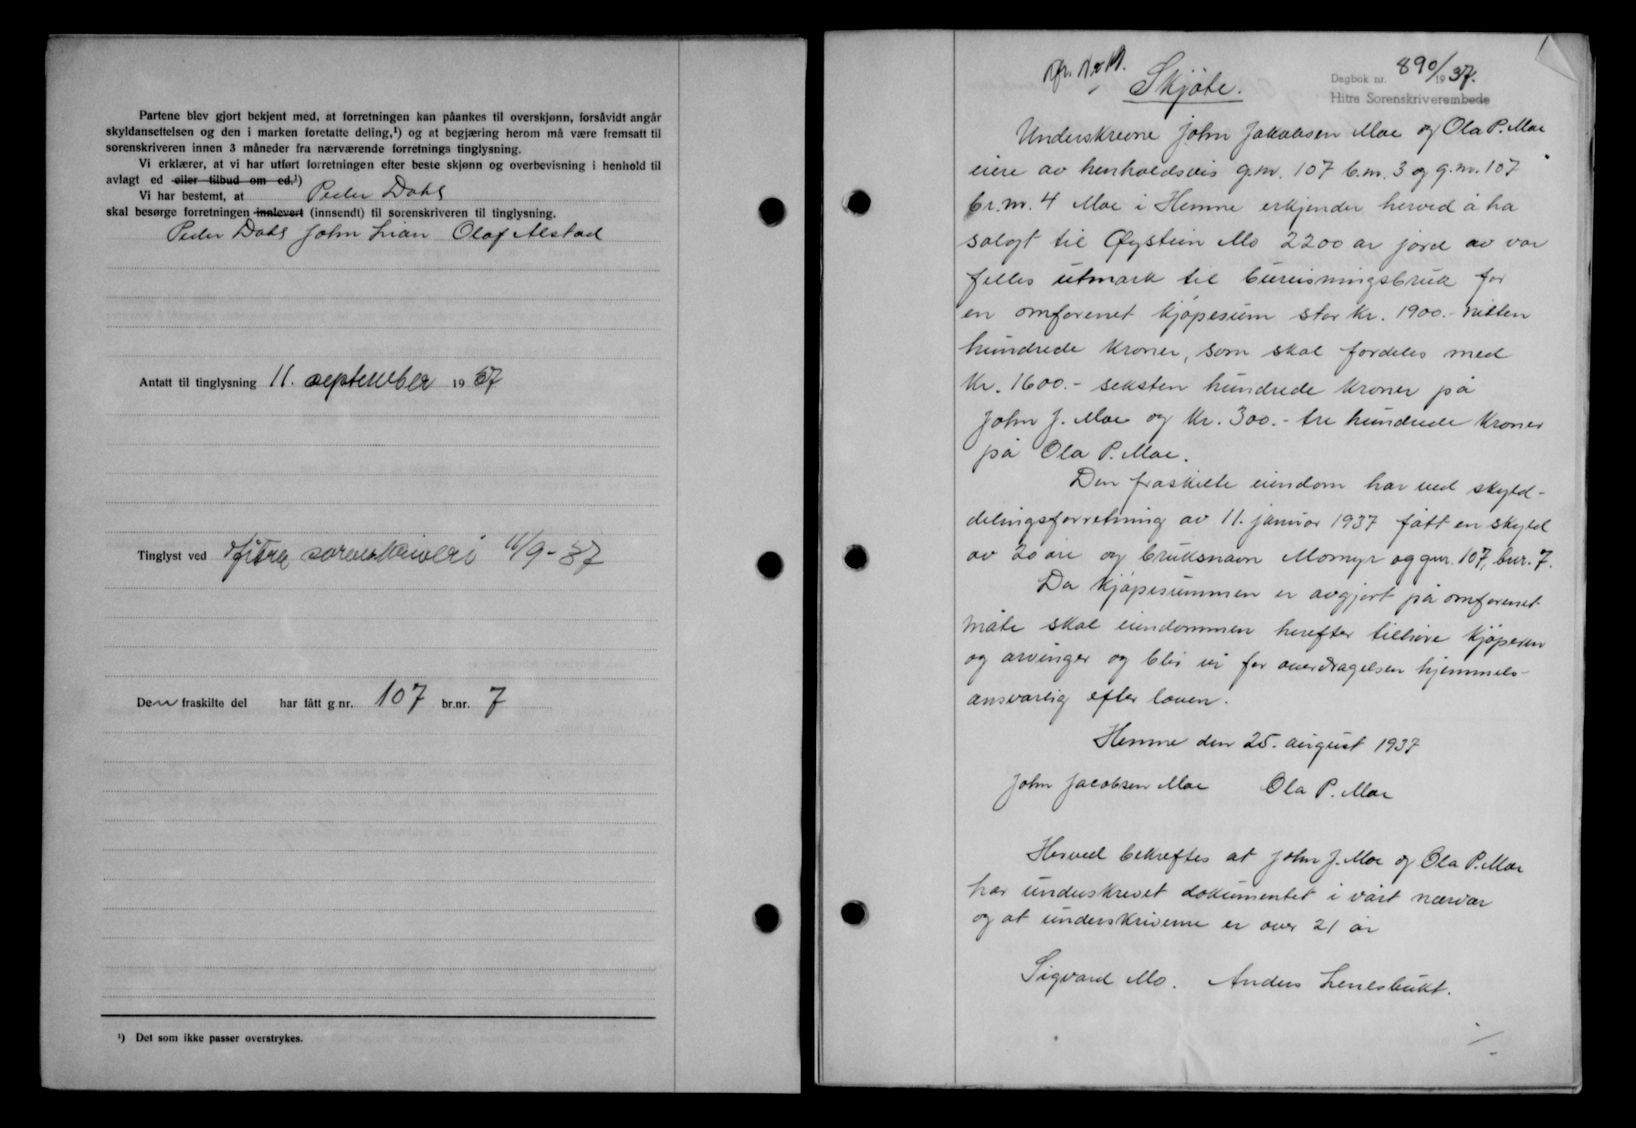 Partene blev gjort bekjent med, at forretningen kan påankes til overskjønn, forsåvidt angår
skyldansettelsen og den i marken foretatte deling,¹) og at begjæring herom må være fremsatt til
sorenskriveren innen 3 måneder fra nærværende forretnings tinglysning.
Vi erklærer, at vi har utført forretningen efter beste skjønn og overbevisning i henhold til
avlagt ed eller tilbud om ed.¹)
Vi har bestemt, at Peder Dahl
skal besørge forretningen innlevert (innsendt) til sorenskriveren til tinglysning.
Peder Dahl John Lian Olaf Alstad
Antatt til tinglysning 11. september 1937
Tinglyst ved Hitra sorenskriveri 11/9-37
Den fraskilte del har fått g.nr. 107 br.nr. 7
¹) Det som ikke passer overstrykes.
Skjøte.
Dagbok nr. 890/1937.
Hitra Sorenskriverembede
Underskrevne John Jakobsen Moe og Ola P. Moe
eiere av henholdsvis g.nr. 107 b.nr. 3 og g.nr. 107
br.nr. 4 Moe i Hemne erkjender herved å ha
solgt til Øystein Mo 2200 ar jord av vår
felles utmark til bureisningsbruk for
en omforenet kjøpesum stor kr. 1900.- nitten
hundrede kroner, som skal fordeles med
kr. 1600.- seksten hundrede kroner på
John J. Moe og kr. 300.- tre hundrede kroner
på Ola P. Moe.
Den fraskilte eiendom har ved skyld-
delingsforretning av 11. januar 1937 fått en skyld
av 20 øre og bruksnavn Momyr og gnr. 107, bnr. 7.
Da kjøpesummen er avgjort på omforenet
måte skal eiendommen herefter tilhøre kjøperen
og arvinger og blir vi for overdragelsen hjemmels-
ansvarlig efter loven.
Hemne den 25. august 1937
John Jacobsen Moe Ola P. Moe
Herved bekreftes at John J. Moe og Ola P. Moe
har underskrevet dokumentet i vårt nærvær
og at underskriverne er over 21 år
Sigvard Mo. Anders Lenesbukt.